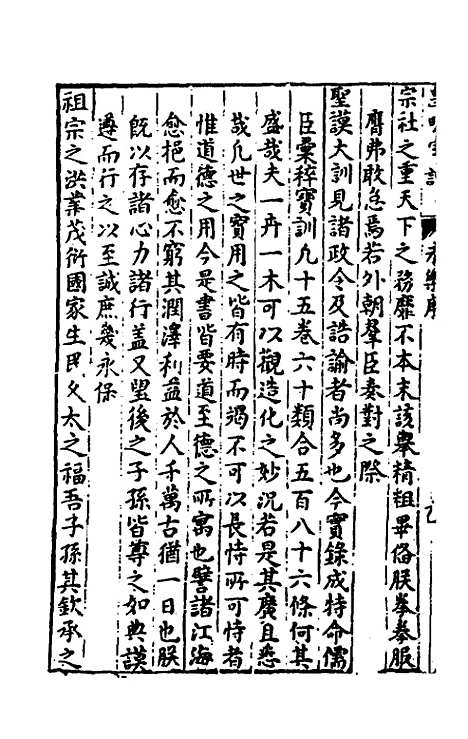 宗社之重天下之務靡不本末該舉精粗畢俻朕拳拳服
膺弗敢怠焉若外朝羣臣奏對之際
聖謨大訓見諸政令及誥諭者尚多也今實錄成特命儒
臣彙稡寶訓九十五卷六十類合五百八十六條何其
盛哉夫一卉一木可以觀造化之妙況若是其廣且悉
哉凡世之寶用之皆有時而竭不可以長恃所可恃者
惟道德之用今是書皆要道至德之所寓也譬諸江海
愈挹而愈不窮其潤澤利益於人千萬古猶一日也朕
旣以存諸心力諸行盖又望後之子孫皆尊之如典謨
遵而行之以至誠庶幾永保
祖宗之洪業茂衍國家生民久太之福吾子孫其欽承之